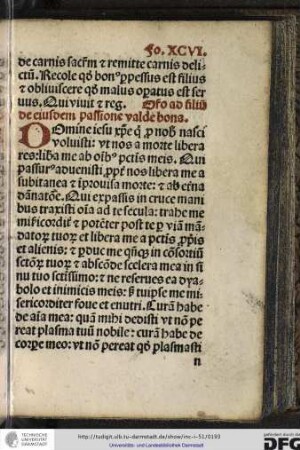 Fo. XCVI.
de carnis sacr̄m ⁊ remitte carnis deli⸗
ctū. Recole qď bonꝰ ꝑpessus est filius
⁊ obliuiscere qď malus oꝑatus est ser
uus. Qui viuit ⁊ reg. Oŕo ad filiū
de eiusdem passione valde bona.
Domine iesu xp̄e q̇ ꝓ nob̓ nasci
voluisti: vt nos a morte libera
res: libͣa me ab oīb̓ pctīs meis. Qui
passurꝰ aduenisti, ꝓpt̓ nos libera me a
subitanea ⁊ īprouisa morte: ⁊ ab et̓na
dānatōe. Qui expassis in cruce mani
bus traxisti oīa ad te secula: trahe me
mīsericordit̓ ⁊ potēter post te ꝑ viā mā⸗
datoꝝ tuoꝝ et libera me a pctīs ꝓprijs
et alienis: ⁊ ꝑduc me q̇usq̄ in cōsortiū
sctōꝝ tuoꝝ ⁊ abscōde scelera mea in si
nu tuo sctīssimo: ⁊ ne reserues ea dya⸗
bolo et inimicis meis: s̄ vsq̄ me mi⸗
sericorditer foue et enutri. Curā habe
de aīa mea: quā mihi dedisti vt nō pe
reat plasma tuū nobile: curā habe de
corꝑe meo: vt nō pereat qď plasmasti
n
TECHNISCHE
UNIVERSITÄT
DARMSTADT
http://tudigit.ulb.tu-darmstadt.de/show/inc-i-51/0193
Universitäts- und Landesbibliothek Darmstadt
gefördert durch die
DFG